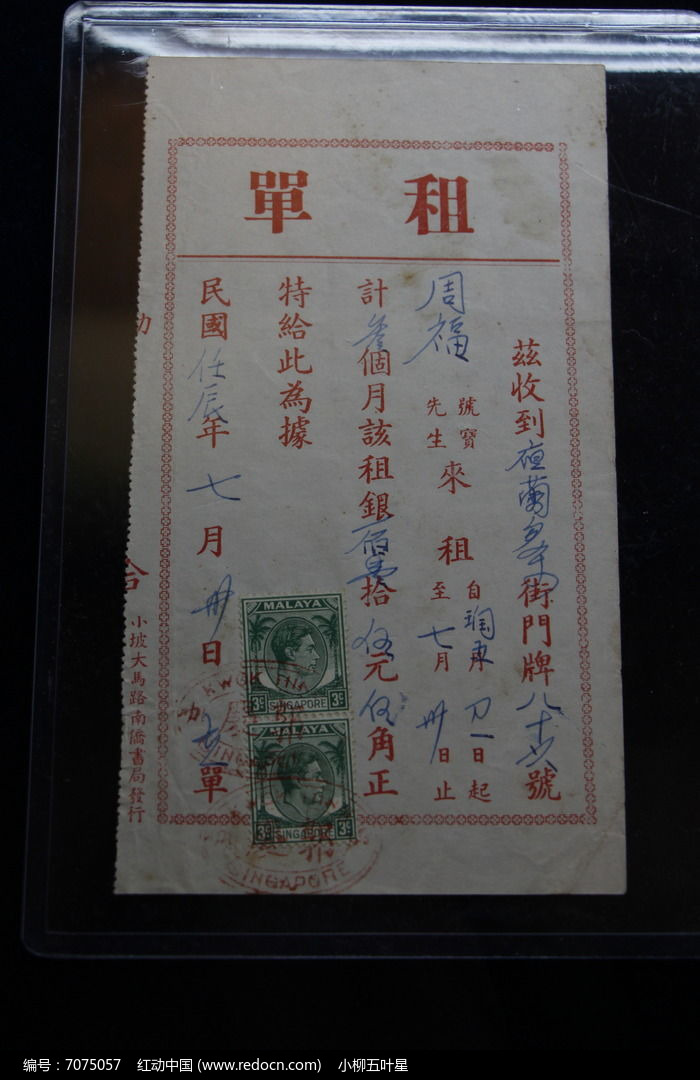 租單
茲收到 街門牌八十六號
周福 寶號 先生 來租 自 月 一日起 至七月卅日止
計叁個月該租銀 佰 拾伍元伍角正
特給此為據
民國任辰年七月卅日 單
小坡大馬路南僑書局發行
MALAYA
3c SINGAPORE 3c
MALAYA
3c SINGAPORE 3c
KWOK
SINGAPORE
编号：7075057 红动中国 (www.redocn.com) 小柳五叶星